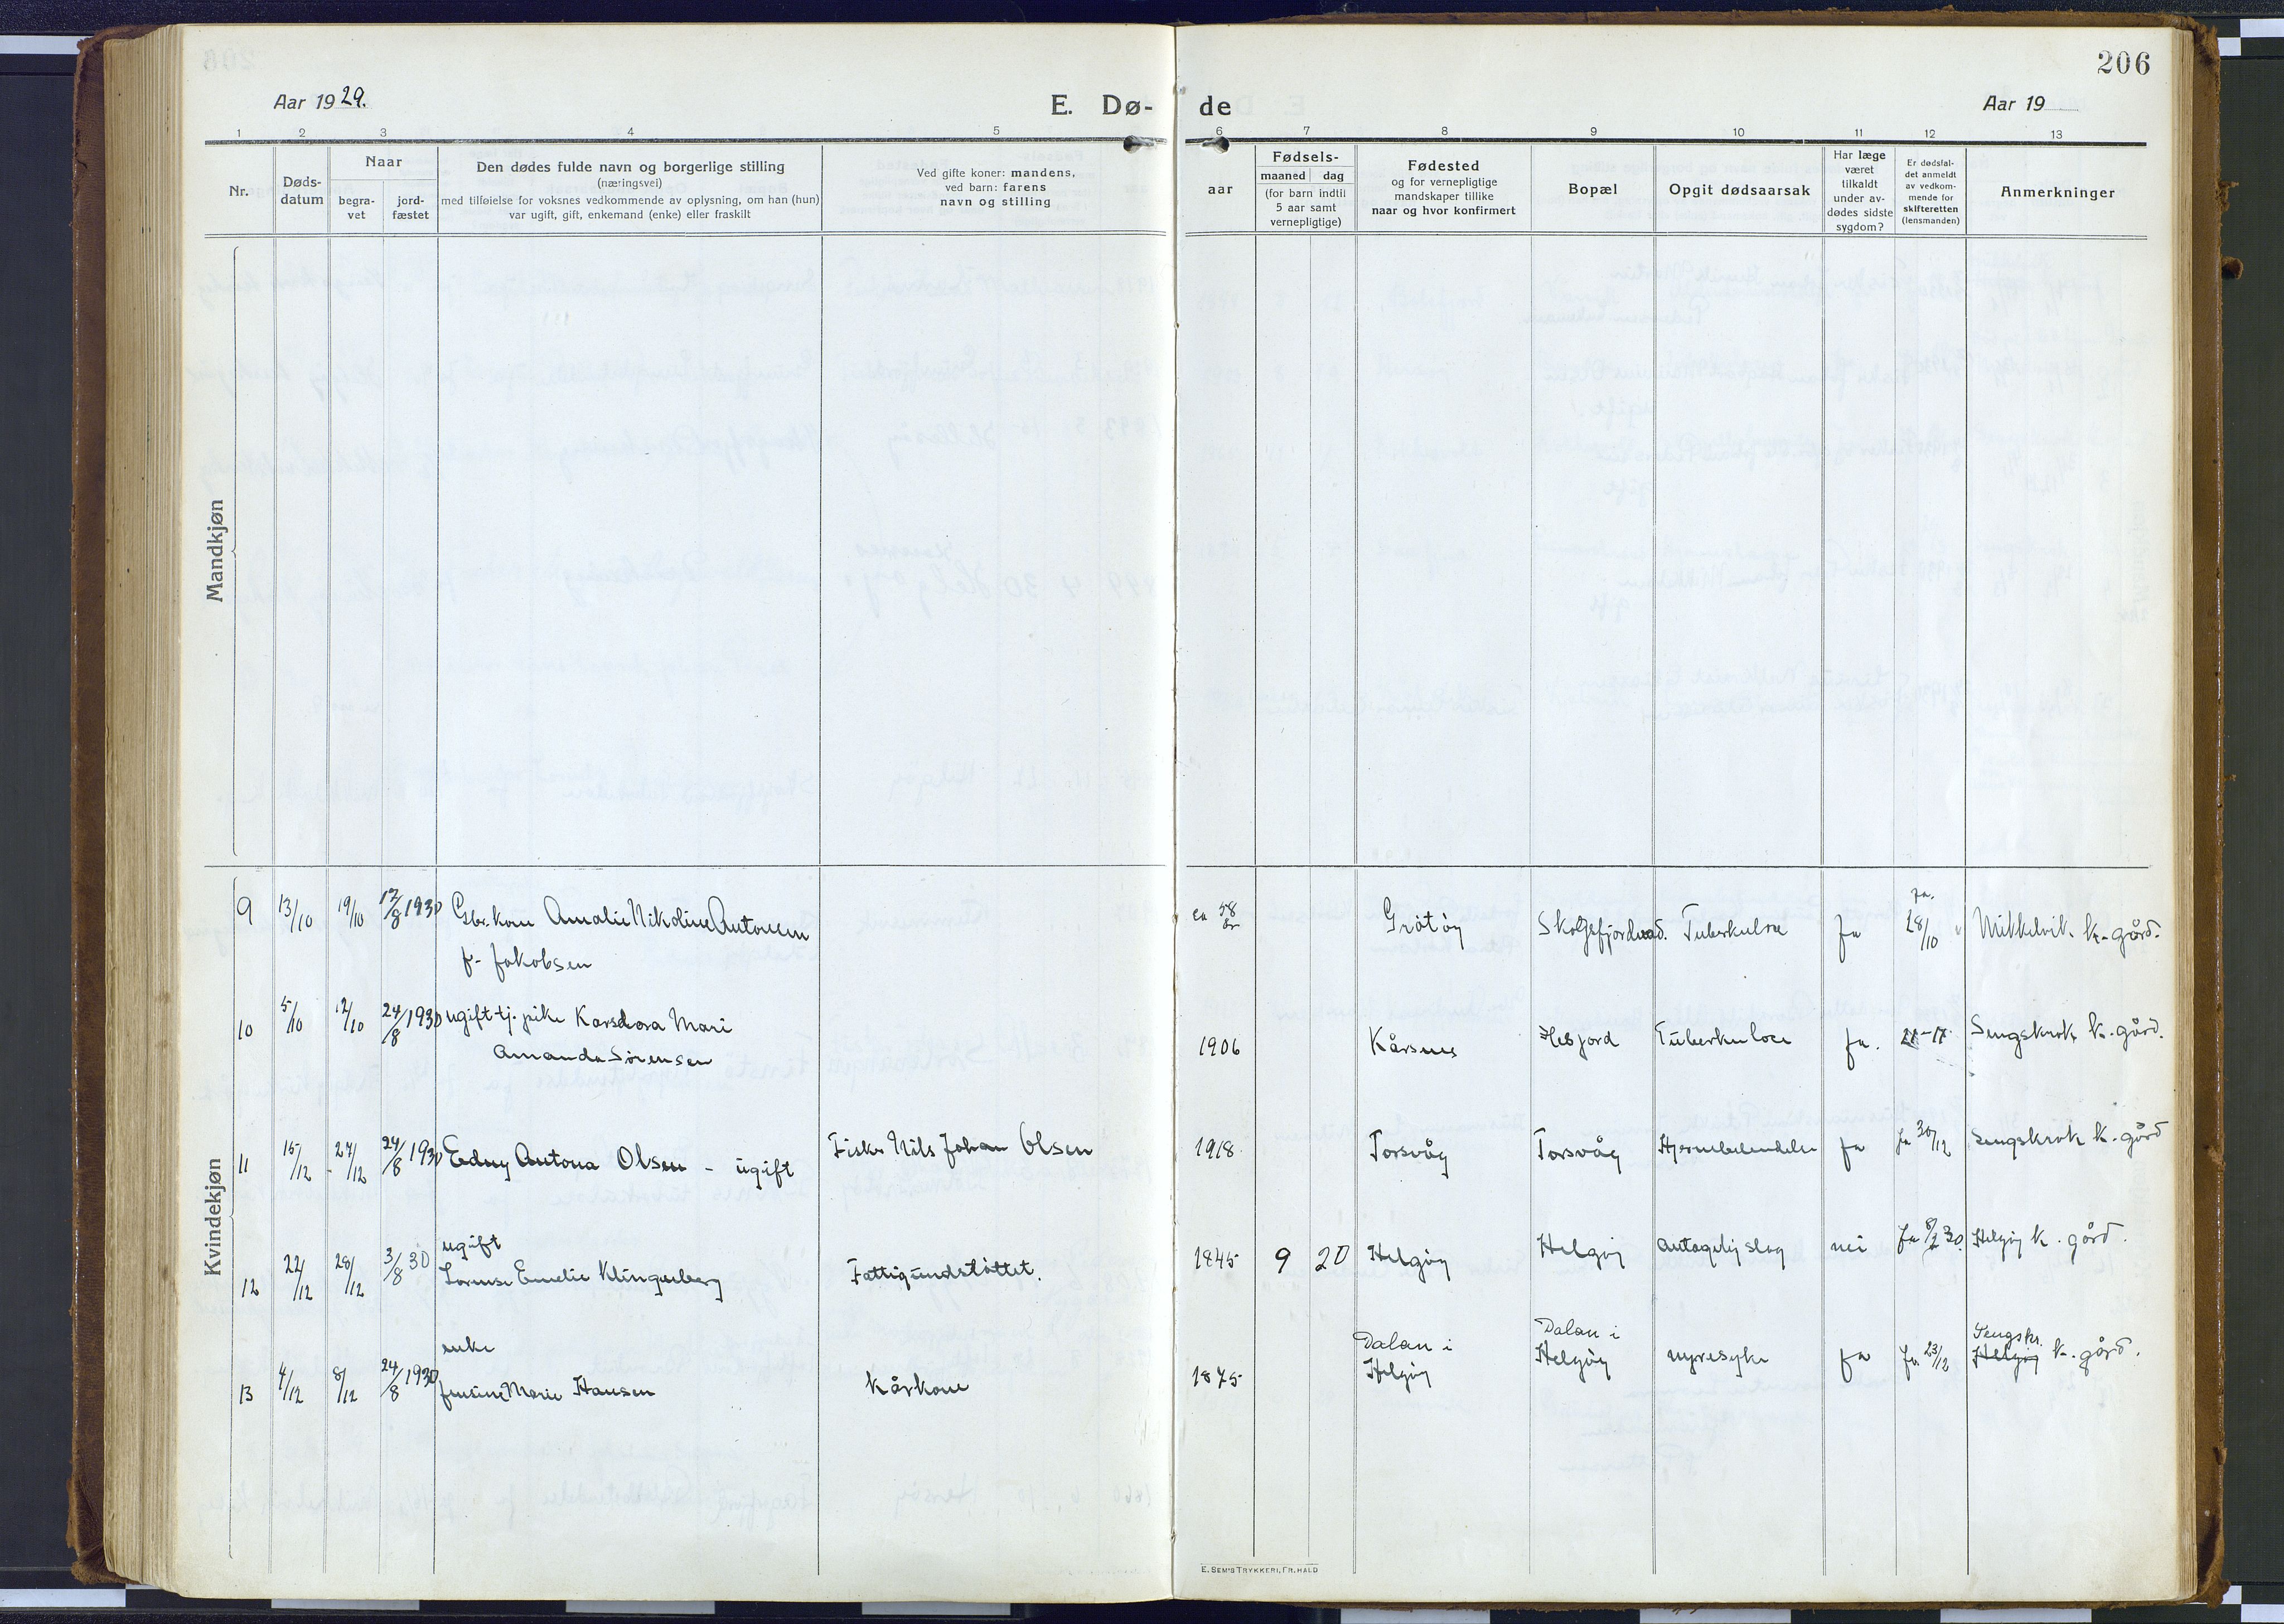 206
Aar 1929.
E. Dø- de
Aar 19
1 2 3 4 5 6 7 8 9 10 11 12 13
Nr.
Døds-
datum
Naar
begra-
vet
jord-
fæstet
Den dødes fulde navn og borgerlige stilling
(næringsvei)
med tilføielse for voksnes vedkommende av oplysning, om han (hun)
var ugift, gift, enkemand (enke) eller fraskilt
Ved gifte koner: mandens,
ved barn: farens
navn og stilling
aar
Fødsels-
maaned dag
(for barn indtil
5 aar samt
vernepligtige)
Fødested
og for vernepligtige
mandskaper tillike
naar og hvor konfirmert
Bopæl
Opgit dødsaarsak
Har læge
været
tilkaldt
under av-
dødes sidste
sygdom?
Er dødsfal-
det anmeldt
av vedkom-
mende for
skifteretten
(lensmanden)
Anmerkninger
Mandkjøn
Kvindekjøn
9 13/10 19/10 17/8 1930 Gbr. kone Amalie Nikoline Antonsen
f. Jakobsen
ca 58 år Grötöy Tuberkulose ja ja. 28/10 Mikkelvik k. gård.
10 5/10 12/10 24/8 1930 ugift tj. pike Karsdora Mari
Amanda Sörensen
1906 Kårsnes Hesfjord Tuberkulose ja. Sengskrok k. gård.
11 15/12 27/12 24/8 1930 Edny Antona Olsen - ugift Fisker Nils Johan Olsen 1918 Torsvåg Torsvåg Hjernebetendelse ja ja 30/12 Sengskrok k. gård
12 22/12 28/12 3/8 30 ugift
Lorense Emelie Klingenberg Fattigundstöttet. 1845 9 20 Helgöy Helgöy antagelig slag nei ja 8/2 30. Helgöy k. gård.
13 4/12 8/12 24/8 1930 enke
Jensine Marie Hansen Kårkone 1875 Dalan i
Helgöy Dalan i
Helgöy nyresyke ja ja 23/12 Sengskr.
Helgöy k. gård.
E. SEM'S TRYKKERI, FR.HALD